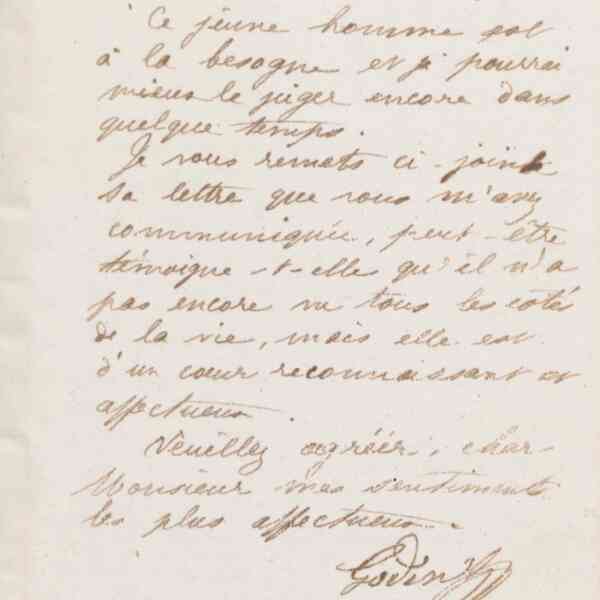 Ce jeune homme est
à la besogne et je pourrai
mieux le juger encore dans
quelque temps.
Je vous remets ci-joint
sa lettre que vous m'avez
communiquée, peut-être
témoigne-t-elle qu'il n'a
pas encore vu tous les côtés
de la vie, mais elle est
d'un cœur reconnaissant et
affectueux.
Veuillez agréer, cher
Monsieur mes sentiments
les plus affectueux.
Godin